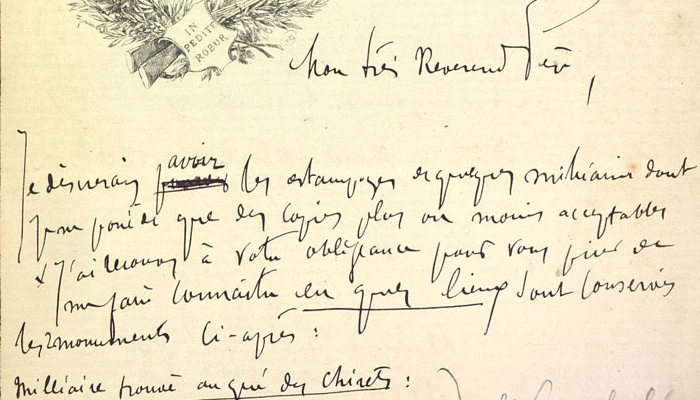 IN
PEDITE
ROBUR
Mon très Reverend Père,
avoir
Je désirerais les estampages de quelques milliaires dont
je ne possède que des copies plus ou moins acceptables
J'ai recours à votre obligeance pour vous prier de
me faire connaître en quels lieux sont conservés
les 2 monuments ci-après :
Milliaire trouvé au gué des Chirets :